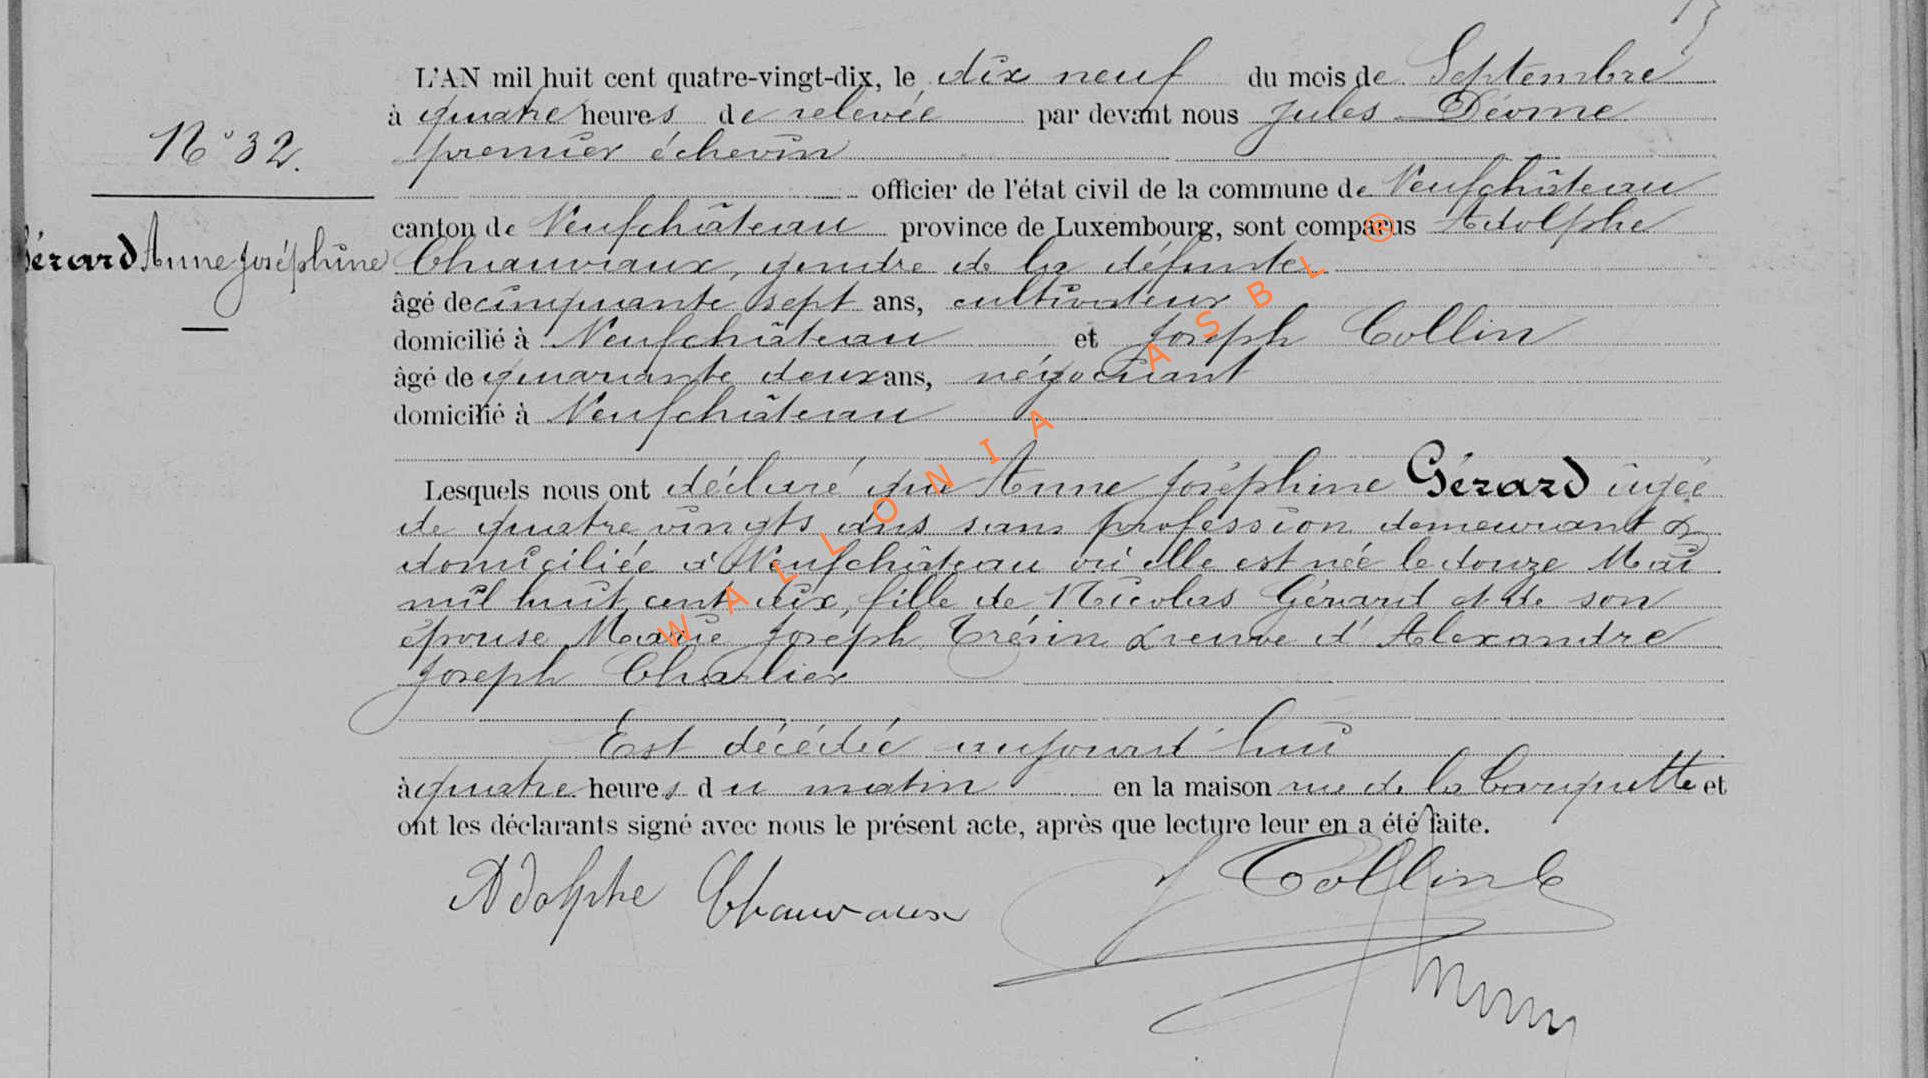 L'AN mil huit cent quatre-vingt-dix, le dix neuf du mois de Septembre
à quatre heures de relevée par devant nous Jules Déome
premier échevin
officier de l'état civil de la commune de Neufchâteau
canton de Neufchâteau province de Luxembourg, sont comparus Adolphe
Chauvaux, gendre de la défunte
âgé de cinquante sept ans, cultivateur
domicilié à Neufchâteau et Joseph Collin
âgé de quarante deux ans, négociant
domicilié à Neufchâteau
N° 32.
Gérard Anne Joséphine
Lesquels nous ont déclaré que Anne Joséphine Gérard âgée
de quatre vingts ans sans profession demeurant &
domiciliée à Neufchâteau où elle est née le douze Mai
mil huit cent dix, fille de Nicolas Gérard et de son
épouse Marie Joséph & veuve d'Alexandre
Joseph Charlier
Est décédée aujourd'hui
à quatre heures du matin en la maison rue de la et
ont les déclarants signé avec nous le présent acte, après que lecture leur en a été faite.
Adolphe Chauvaux
J Collin
WALLONIA ASBL ®